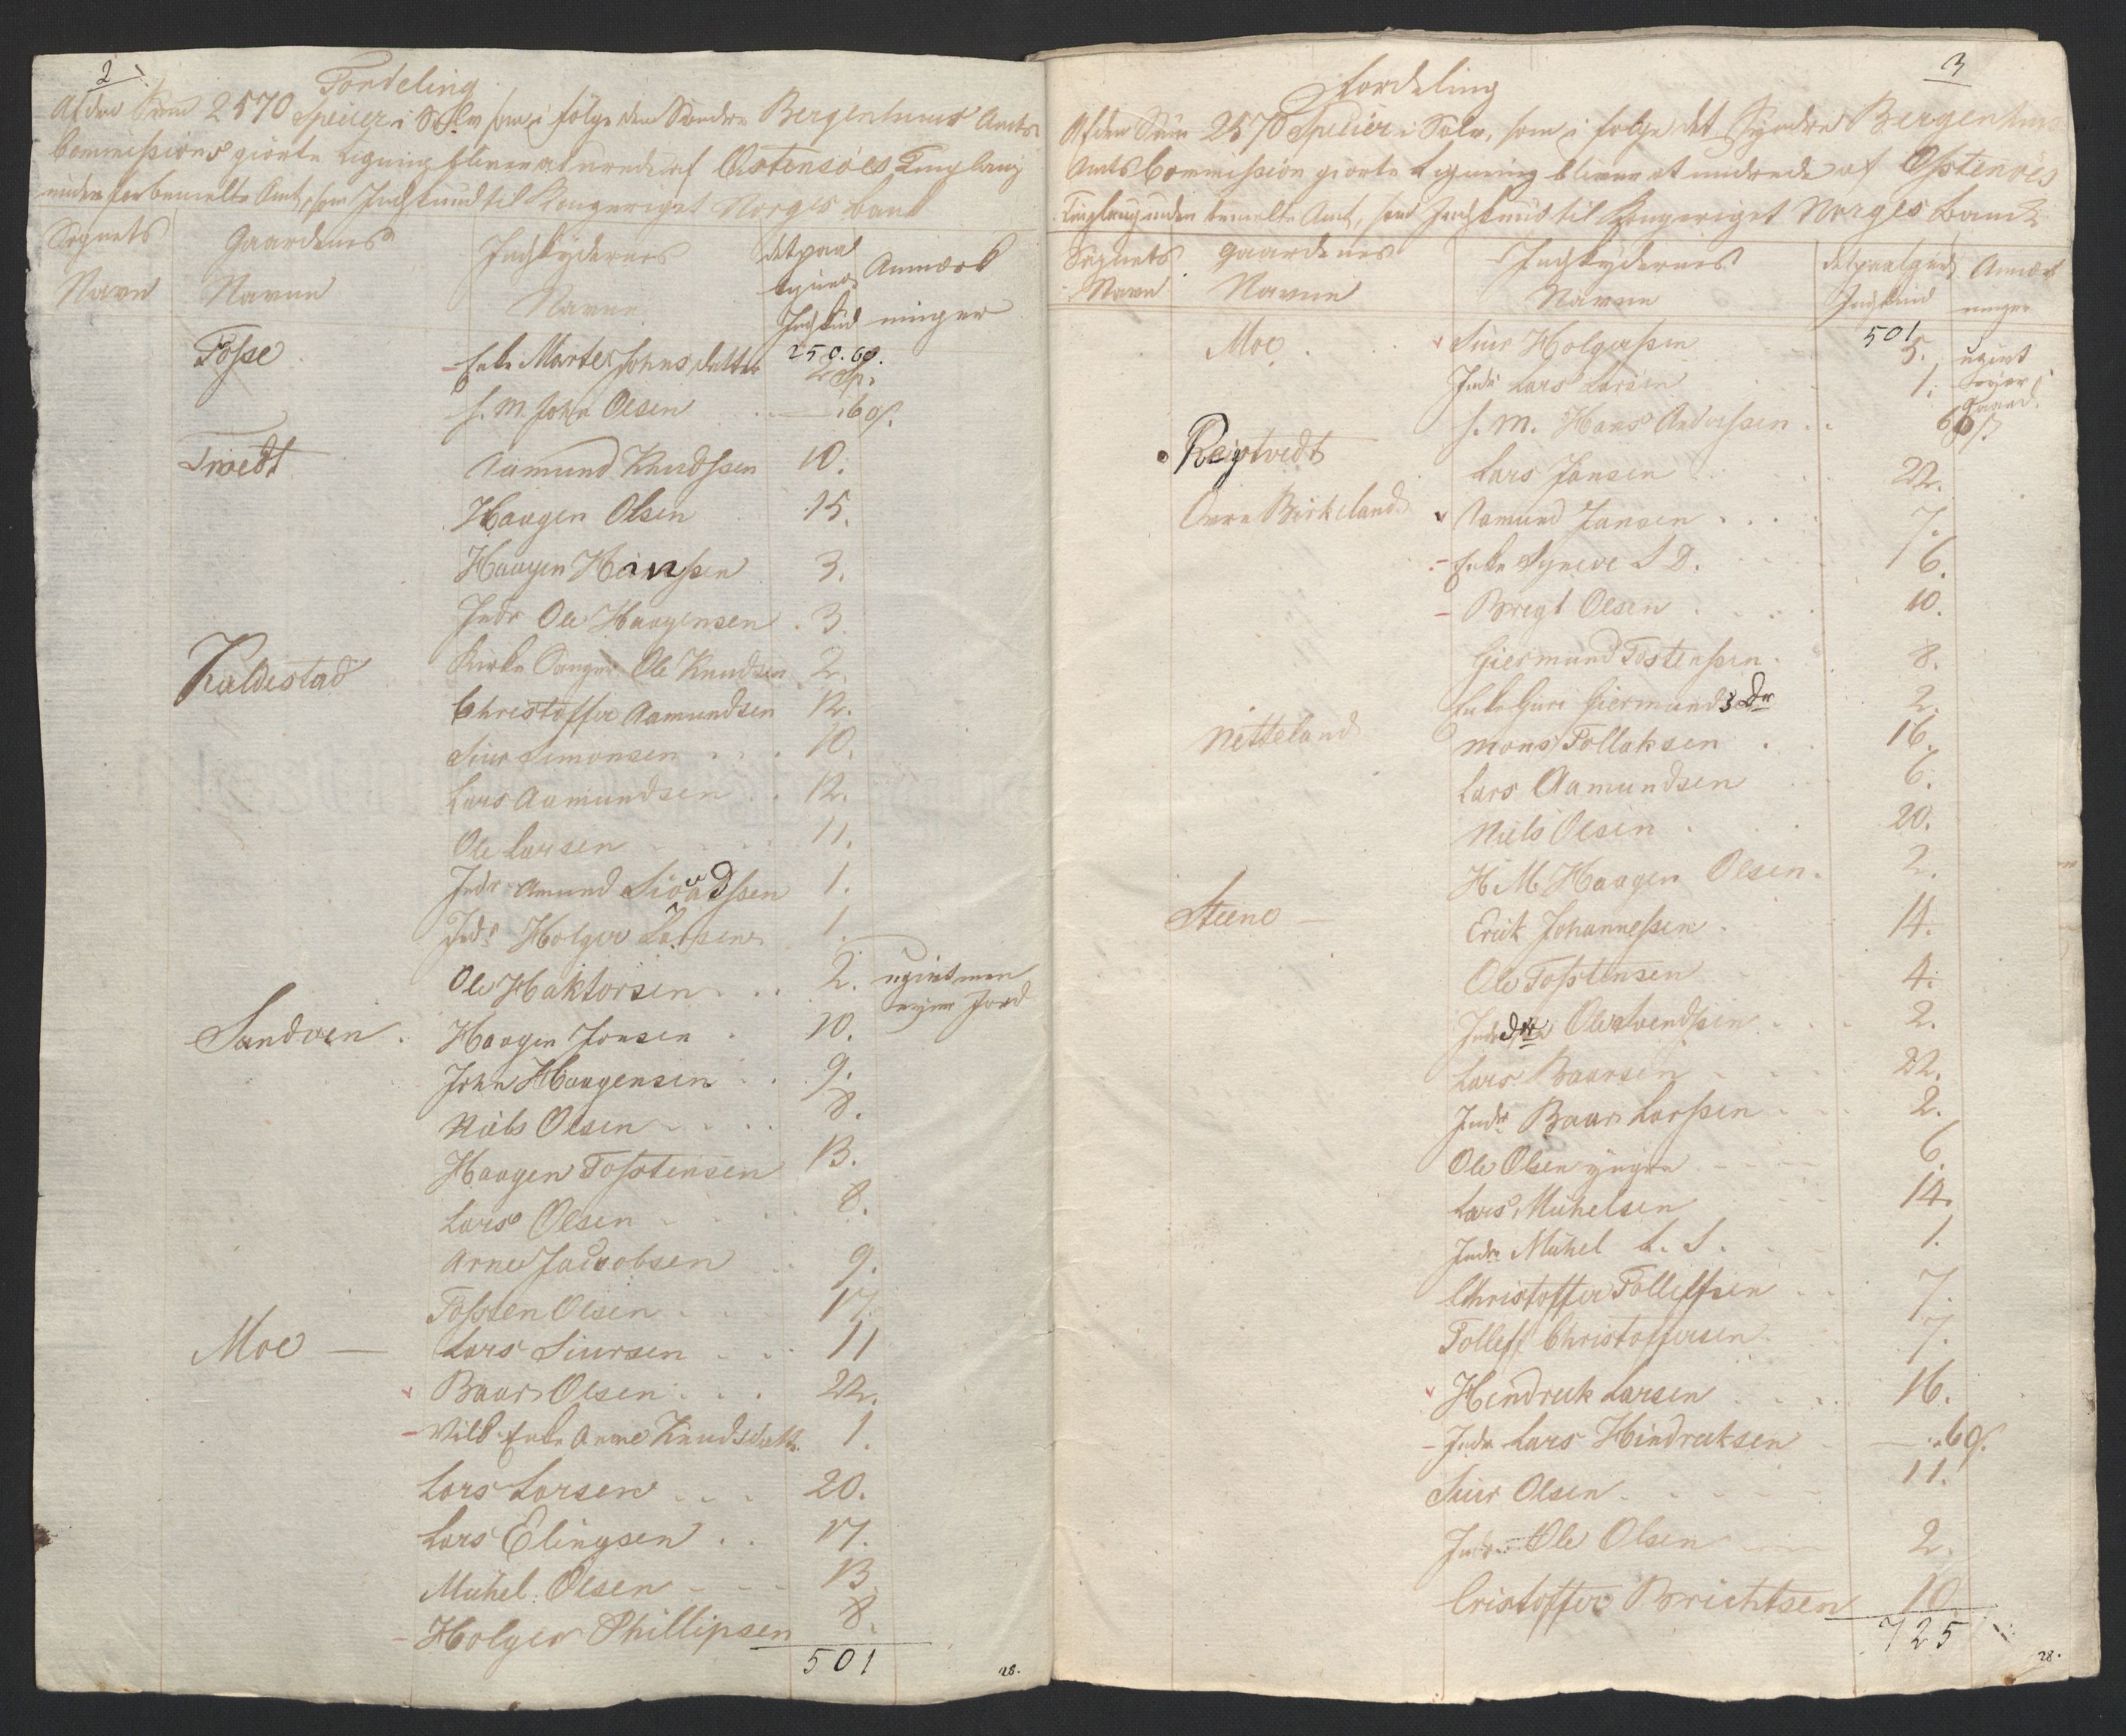 2
Fordeling
Af den Sum 2570 Species i Sølv som i følge den Søndre Bergenhuus Amts
Commissions giorte Ligning bliver at udrede af Østensøes Tinglaug
under forbemelte Amt, som Indskud til Kongeriget Norges bank
Sognets Navn
Gaardenes Navne
Indskydernes Navne
det paalignede Indskud
Anmærkninger
250. 60.
Fosse Enke Marte Johnsdatter 2 Sp.
H. M. John Olsen 60 s.
Tvedt Aamund Knudssen 10.
Haagen Olsen 15.
Haagen Hanssen 3.
Inds Ole Haagensen 3.
Kaldestad Kirke Sanger Ole Knudsen 2.
Christoffer Aamundsen 12.
Siur Simonsen 10.
Lars Aamundsen 12.
Ole Larsen 11.
Inds Amund Sivadssen 1.
Inds Holger Larsen 1.
Ole Haktorsen 2. ugivt men eyer Jord
Sandven Haagen Jonsen 10.
John Haagensen 9.
Niels Olsen 8.
Haagen Tostensen 13.
Lars Olsen 8.
Arne Jacobsen 9.
Tosten Olsen 17.
Moe Lars Siursen 11
Baar Olsen 22.
Vilk Enke Anne Knudsdatter 1.
Lars Larsen 20.
Lars Elingsen 17.
Michel Olsen 13
Holger Phillipsen 8.
501
28.
3
Fordeling
Af den Sum 2570 Species i Sølv, som i følge det Søndre Bergenhuus
Amts Commission giorte Ligning bliver at udrede af Østensøes
Tinglaug under bemelte Amt, som Indskud til Kongeriget Norges bank
Sognets Navn
Gaardenes Navne
Indskydernes Navne
det paalignede Indskud
Anmærkninger
501
Moe Siur Holgersen 5. ugivt eyer Gaard.
Inds Lars Larsen 1.
H. M. Hans Anderssen 60 s.
Reistvedt Lars Jansen 22.
Øvre Birkeland Aamund Jansen 7.
Enke Synneve S D. 6.
Brigt Olsen 10.
Giermund Tostensen 8.
Enke Guri Giermunds Dr 2.
Netteland Mons Tollaksen 16.
Lars Aamundsen 6.
Niels Olsen 20.
H. M. Haagen Olsen 2.
Steene Erik Johannessen 14.
Ole Tostensen 4.
Inds Ole Svendsen 2.
Lars Baarsen 22.
Inds Baar Larssen 2.
Ole Olsen yngre 6.
Lars Michelsen 14.
Inds Michel L. S. 1.
Christoffer Tolleffsen 7.
Tolleff Christoffersen 7.
Hendrick Larsen 16.
Inds Lars Hindricksen 60 s.
Siur Olsen 11.
Inds Ole Olsen 2.
Cristoffer Brichtsen 10
725
28.